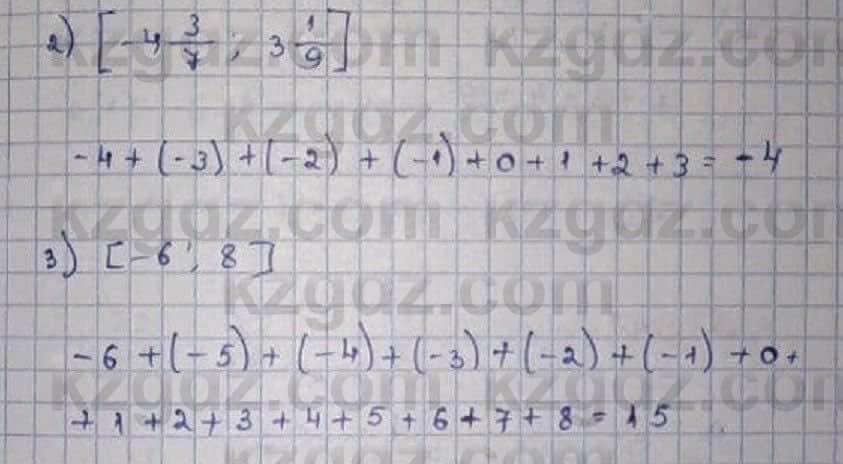 2) [-4 3/7 ; 3 1/9]
-4 + (-3) + (-2) + (-1) + 0 + 1 + 2 + 3 = -4
3) [-6 ; 8]
-6 + (-5) + (-4) + (-3) + (-2) + (-1) + 0 +
+ 1 + 2 + 3 + 4 + 5 + 6 + 7 + 8 = 15
kzgdz.com kzgdz.com
kzgdz.com
kzgdz.com kzgdz.com
kzgdz.com
kzgdz.com kzgdz.com